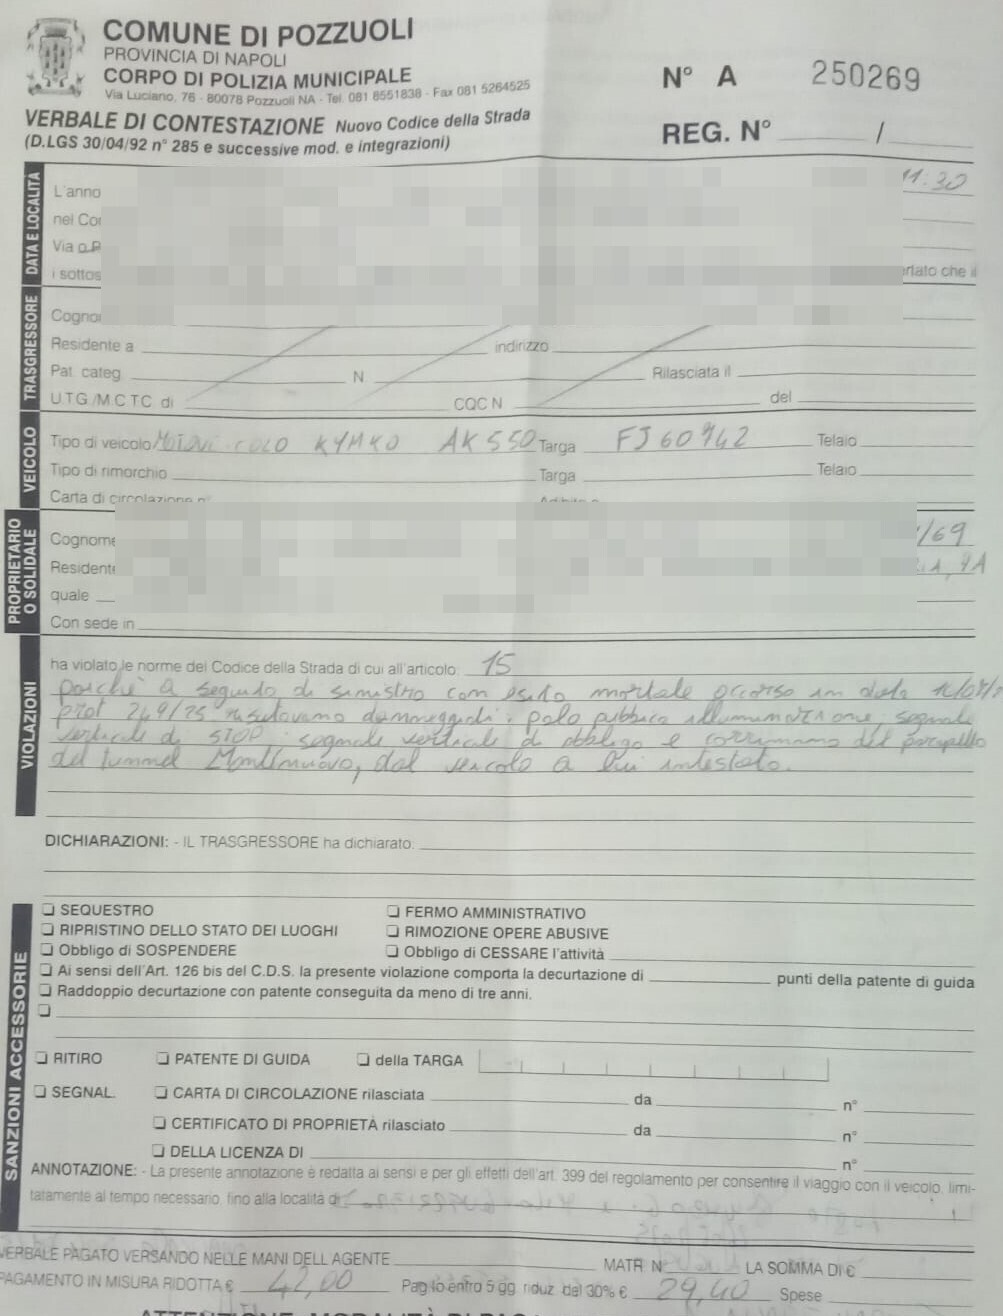 COMUNE DI POZZUOLI
PROVINCIA DI NAPOLI
CORPO DI POLIZIA MUNICIPALE
Via Luciano, 76 - 80078 Pozzuoli NA - Tel. 081 8551838 - Fax 081 5264525
N° A 250269
VERBALE DI CONTESTAZIONE Nuovo Codice della Strada
(D.LGS 30/04/92 n° 285 e successive mod. e integrazioni)
REG. N° /
DATA E LOCALITÀ
L'anno 11:30
nel
Via o
i che
TRASGRESSORE
Residente a indirizzo
Pat. categ. N Rilasciata il
U.T.G./M.C.T.C. di CQC N del
VEICOLO
Tipo di veicolo MOTOVEICOLO KYMKO AK550 Targa FJ60942 Telaio
Tipo di rimorchio Targa Telaio
Carta di circolazione
PROPRIETARIO O SOLIDALE
Cognome /69
Residente 9A
quale
Con sede in
VIOLAZIONI
ha violato le norme del Codice della Strada di cui all'articolo: 15
poiché a seguito di sinistro con esito mortale occorso in data
prot 249/25 risultavano danneggiati: palo pubblica illuminazione, segnale
verticale di STOP segnale verticale di obbligo e corrimano del
del tunnel Montenuovo, dal veicolo a lui intestato.
DICHIARAZIONI: - IL TRASGRESSORE ha dichiarato:
SANZIONI ACCESSORIE
❏ SEQUESTRO ❏ FERMO AMMINISTRATIVO
❏ RIPRISTINO DELLO STATO DEI LUOGHI ❏ RIMOZIONE OPERE ABUSIVE
❏ Obbligo di SOSPENDERE ❏ Obbligo di CESSARE l'attività
❏ Ai sensi dell'Art. 126 bis del C.D.S. la presente violazione comporta la decurtazione di punti della patente di guida
❏ Raddoppio decurtazione con patente conseguita da meno di tre anni.
❏
❏ RITIRO ❏ PATENTE DI GUIDA ❏ della TARGA
❏ SEGNAL. ❏ CARTA DI CIRCOLAZIONE rilasciata da n°
❏ CERTIFICATO DI PROPRIETÀ rilasciato da n°
❏ DELLA LICENZA DI n°
ANNOTAZIONE: - La presente annotazione è redatta ai sensi e per gli effetti dell'art. 399 del regolamento per consentire il viaggio con il veicolo, limi-
tatamente al tempo necessario, fino alla località di
VERBALE PAGATO VERSANDO NELLE MANI DELL'AGENTE MATR. N LA SOMMA DI €
PAGAMENTO IN MISURA RIDOTTA € 42,00 Pag.to entro 5 gg. riduz. del 30% € 29,40 Spese